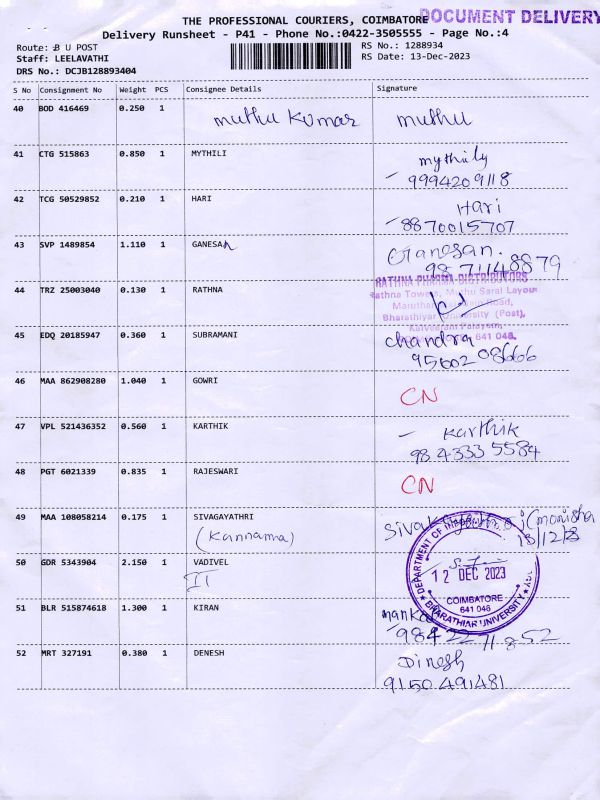 DOCUMENT DELIVERY
THE PROFESSIONAL COURIERS, COIMBATORE
Delivery Runsheet - P41 - Phone No.:0422-3505555 - Page No.:4
Route: B U POST
RS No.: 1288934
Staff: LEELAVATHI
RS Date: 13-Dec-2023
DRS No.: DCJB128893404
S No Consignment No Weight PCS Consignee Details Signature
40 BOD 416469 0.250 1 muthu Kumar muthu
41 CTG 515863 0.850 1 MYTHILI mythily
9994209118
42 TCG 50529852 0.210 1 HARI Hari
8870015707
43 SVP 1489854 1.110 1 GANESAN Ganesan.
98 71148879
44 TRZ 25003040 0.130 1 RATHNA
RATHNA PHARMA DISTRIBUTORS
Rathna Towers, Muthu Saral Layout
Road,
Bharathiyar University (Post),
Kalveeram Palayam,
641 046.
45 EDQ 20185947 0.360 1 SUBRAMANI chandra
9560208666
46 MAA 862908280 1.040 1 GOWRI CN
47 VPL 521436352 0.560 1 KARTHIK Karthik
98 4333 5584
48 PGT 6021339 0.835 1 RAJESWARI CN
49 MAA 108058214 0.175 1 SIVAGAYATHRI
(Kannama)
50 GDR 5343904 2.150 1 VADIVEL
II
DEPARTMENT OF
12 DEC 2023
COIMBATORE
641 046
BHARATHIAR UNIVERSITY
51 BLR 515874618 1.300 1 KIRAN
98422 71852
52 MRT 327191 0.380 1 DENESH Dinesh
9150491481